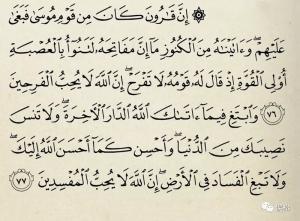 ۞ إِنَّ قَٰرُونَ كَانَ مِن قَوْمِ مُوسَىٰ فَبَغَىٰ
عَلَيْهِمْ ۖ وَءَاتَيْنَٰهُ مِنَ ٱلْكُنُوزِ مَآ إِنَّ مَفَاتِحَهُۥ لَتَنُوٓأُ بِٱلْعُصْبَةِ
أُو۟لِى ٱلْقُوَّةِ إِذْ قَالَ لَهُۥ قَوْمُهُۥ لَا تَفْرَحْ ۖ إِنَّ ٱللَّهَ لَا يُحِبُّ ٱلْفَرِحِينَ
٧٦ وَٱبْتَغِ فِيمَآ ءَاتَىٰكَ ٱللَّهُ ٱلدَّارَ ٱلْءَاخِرَةَ ۖ وَلَا تَنسَ
نَصِيبَكَ مِنَ ٱلدُّنْيَا ۖ وَأَحْسِن كَمَآ أَحْسَنَ ٱللَّهُ إِلَيْكَ ۖ
وَلَا تَبْغِ ٱلْفَسَادَ فِى ٱلْأَرْضِ ۖ إِنَّ ٱللَّهَ لَا يُحِبُّ ٱلْمُفْسِدِينَ ٧٧